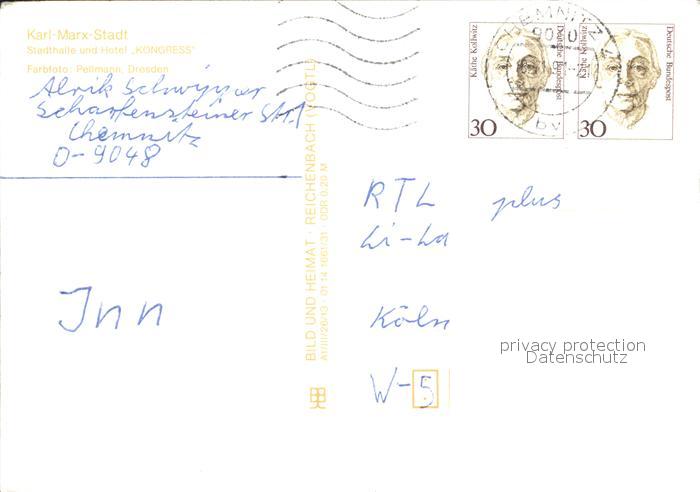 Karl-Marx-Stadt
Stadthalle und Hotel „KONGRESS"
Farbfoto: Pellmann, Dresden
Scharfensteiner Str. 1
Chemnitz
O-9048
Inn
BILD UND HEIMAT · REICHENBACH (VOGTL)
A1/III/26/13 · 01 14 1061/31 · DDR 0,20 M
Käthe Kollwitz
Deutsche Bundespost
30
Käthe Kollwitz
Deutsche Bundespost
30
CHEMNITZ
RTL plus
Li-La
Köln
W-5
privacy protection
Datenschutz